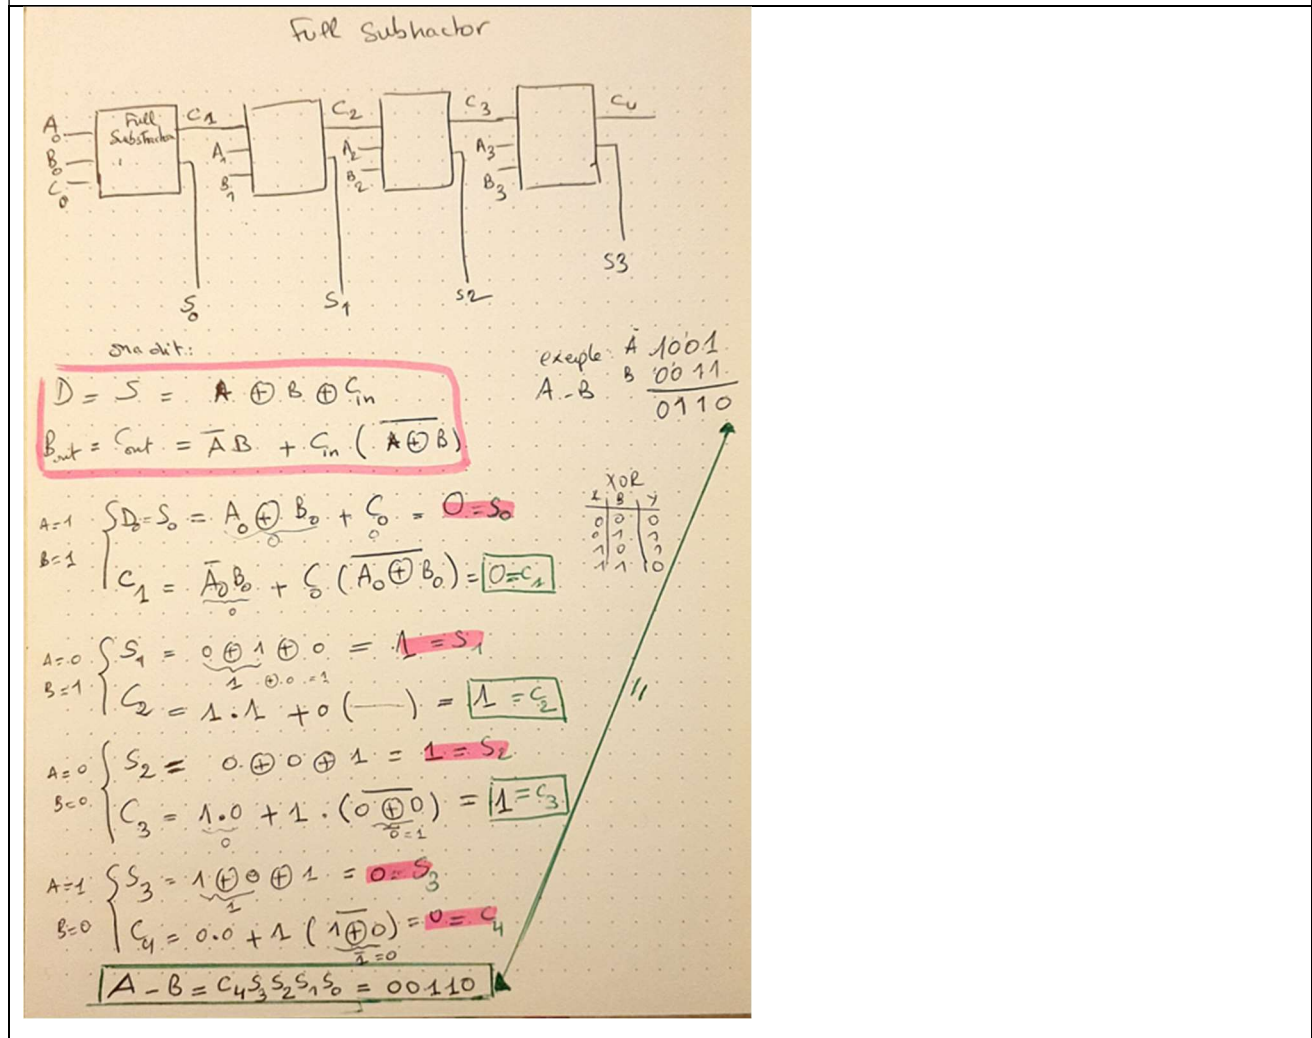 Full Subtractor
A0 B0 C0
Full Substractor
C1 A1 B1
C2 A2 B2
C3 A3 B3
C4
S0 S1 S2 S3
on a dit:
D = S = A ⊕ B ⊕ Cin
Bout = Cout = A̅B + Cin ( \overline{A⊕B} )
exemple: A 1001
A-B B 0011
0110
XOR
B Y
0 0 0
0 1 1
1 0 1
1 1 0
A=1 B=1
D0=S0 = A0 ⊕ B0 + C0 = 0=S0
0 0
C1 = A̅0B0 + C0 ( \overline{A0⊕B0} ) = 0=C1
0
A=0 B=1
S1 = 0 ⊕ 1 ⊕ 0 = 1 = S1
1 ⊕ 0 = 1
C2 = 1.1 + 0 (—) = 1 = C2
A=0 B=0
S2 = 0 ⊕ 0 ⊕ 1 = 1 = S2
C3 = 1.0 + 1.( \overline{0⊕0} ) = 1=C3
0 0̅=1
A=1 B=0
S3 = 1⊕0⊕1 = 0=S3
1
C4 = 0.0 + 1 ( \overline{1⊕0} ) = 0 = C4
1̅=0
A-B = C4S3S2S1S0 = 00110